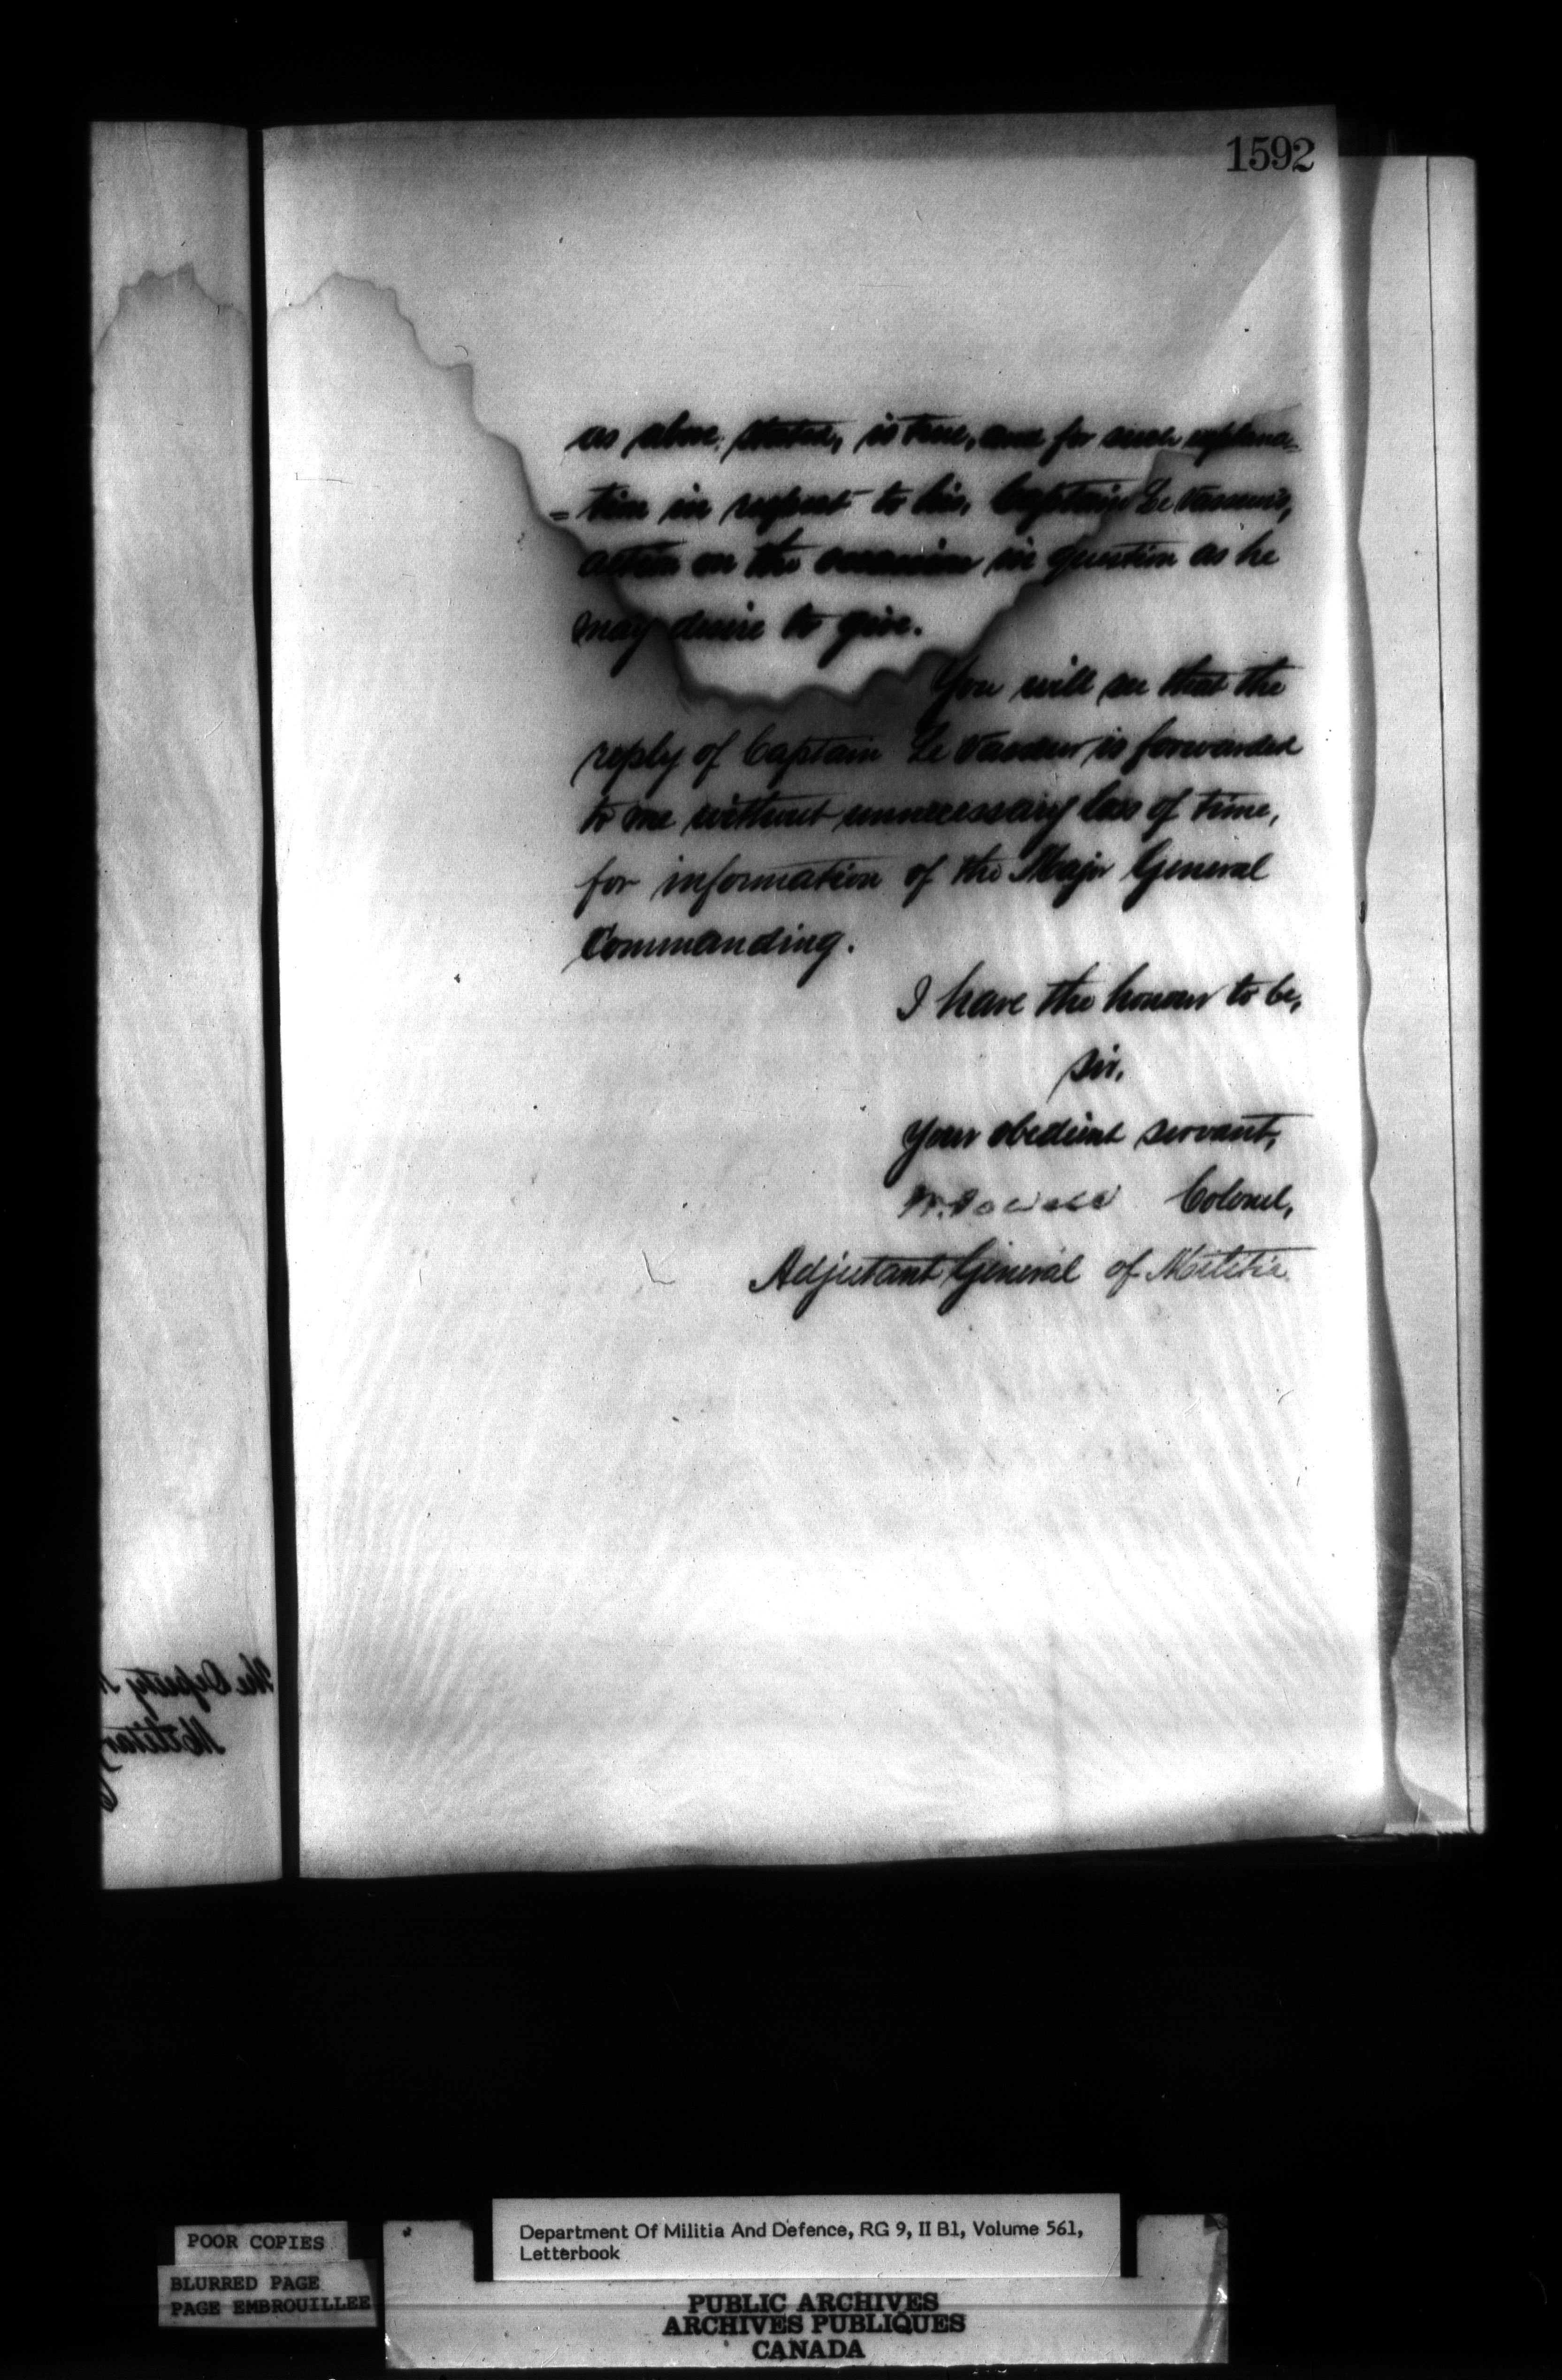 1592
as above, stated, is true, and for such explana=
=tion in respect to his, Captain Le Vasseur's,
action on the occasion in question as he
may desire to give.
You will see that the
reply of Captain Le Vasseur is forwarded
to me without unnecessary loss of time,
for information of the Major General
Commanding.
I have the honour to be,
Sir,
Your obedient servant,
W. Powell Colonel,
Adjutant General of Militia
The Deputy
Military
POOR COPIES
BLURRED PAGE
PAGE EMBROUILLEE
Department Of Militia And Defence, RG 9, II B1, Volume 561,
Letterbook
PUBLIC ARCHIVES
ARCHIVES PUBLIQUES
CANADA